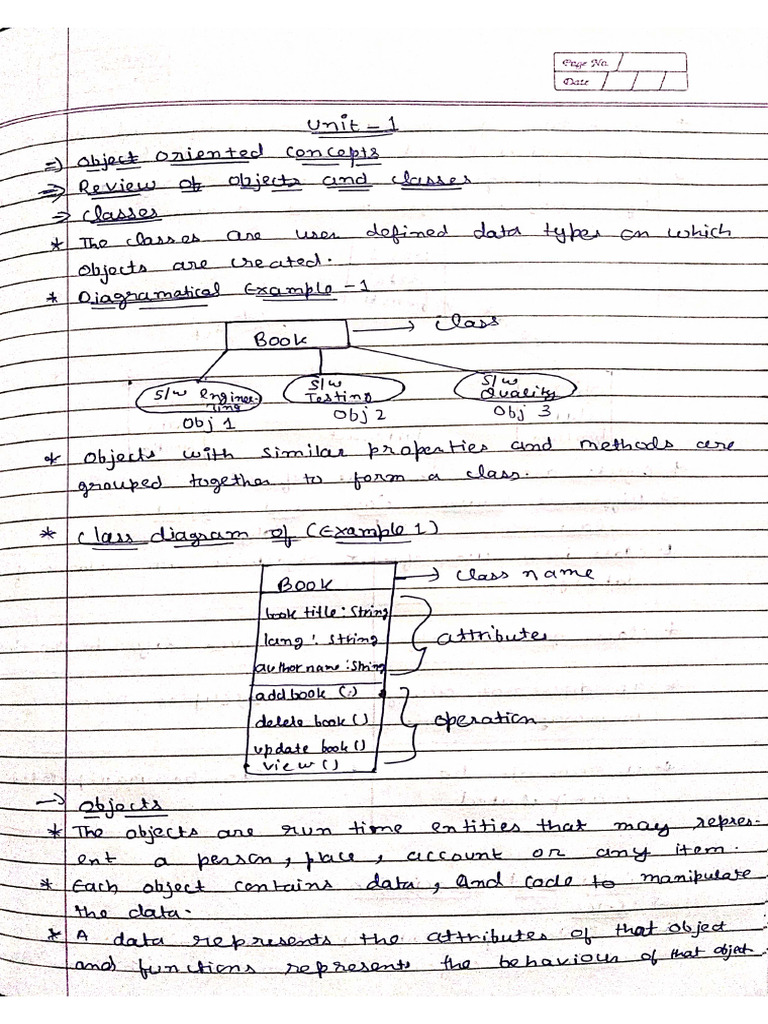 Page No.
Date
Unit - 1
⇒ Object Oriented Concepts
⇒ Review of Objects and Classes
⇒ Classes
* The classes are user defined data types on which
objects are created.
* Diagramatical Example - 1
Book → class
S/w Enginee-
ring
S/w
Testing
S/w
Quality
Obj 1
Obj 2
Obj 3
* Objects with similar properties and methods are
grouped together to form a class.
* Class diagram of (Example 1)
Book → class name
book title : String
lang : String
author name : String
attributes
add book ( )
delete book ()
update book ()
view ()
operation
→ Objects
* The objects are run time entities that may repres-
ent a person, place, account or any item.
* Each object contains data, and code to manipulate
the data.
* A data represents the attributes of that object
and functions represents the behaviour of that object.